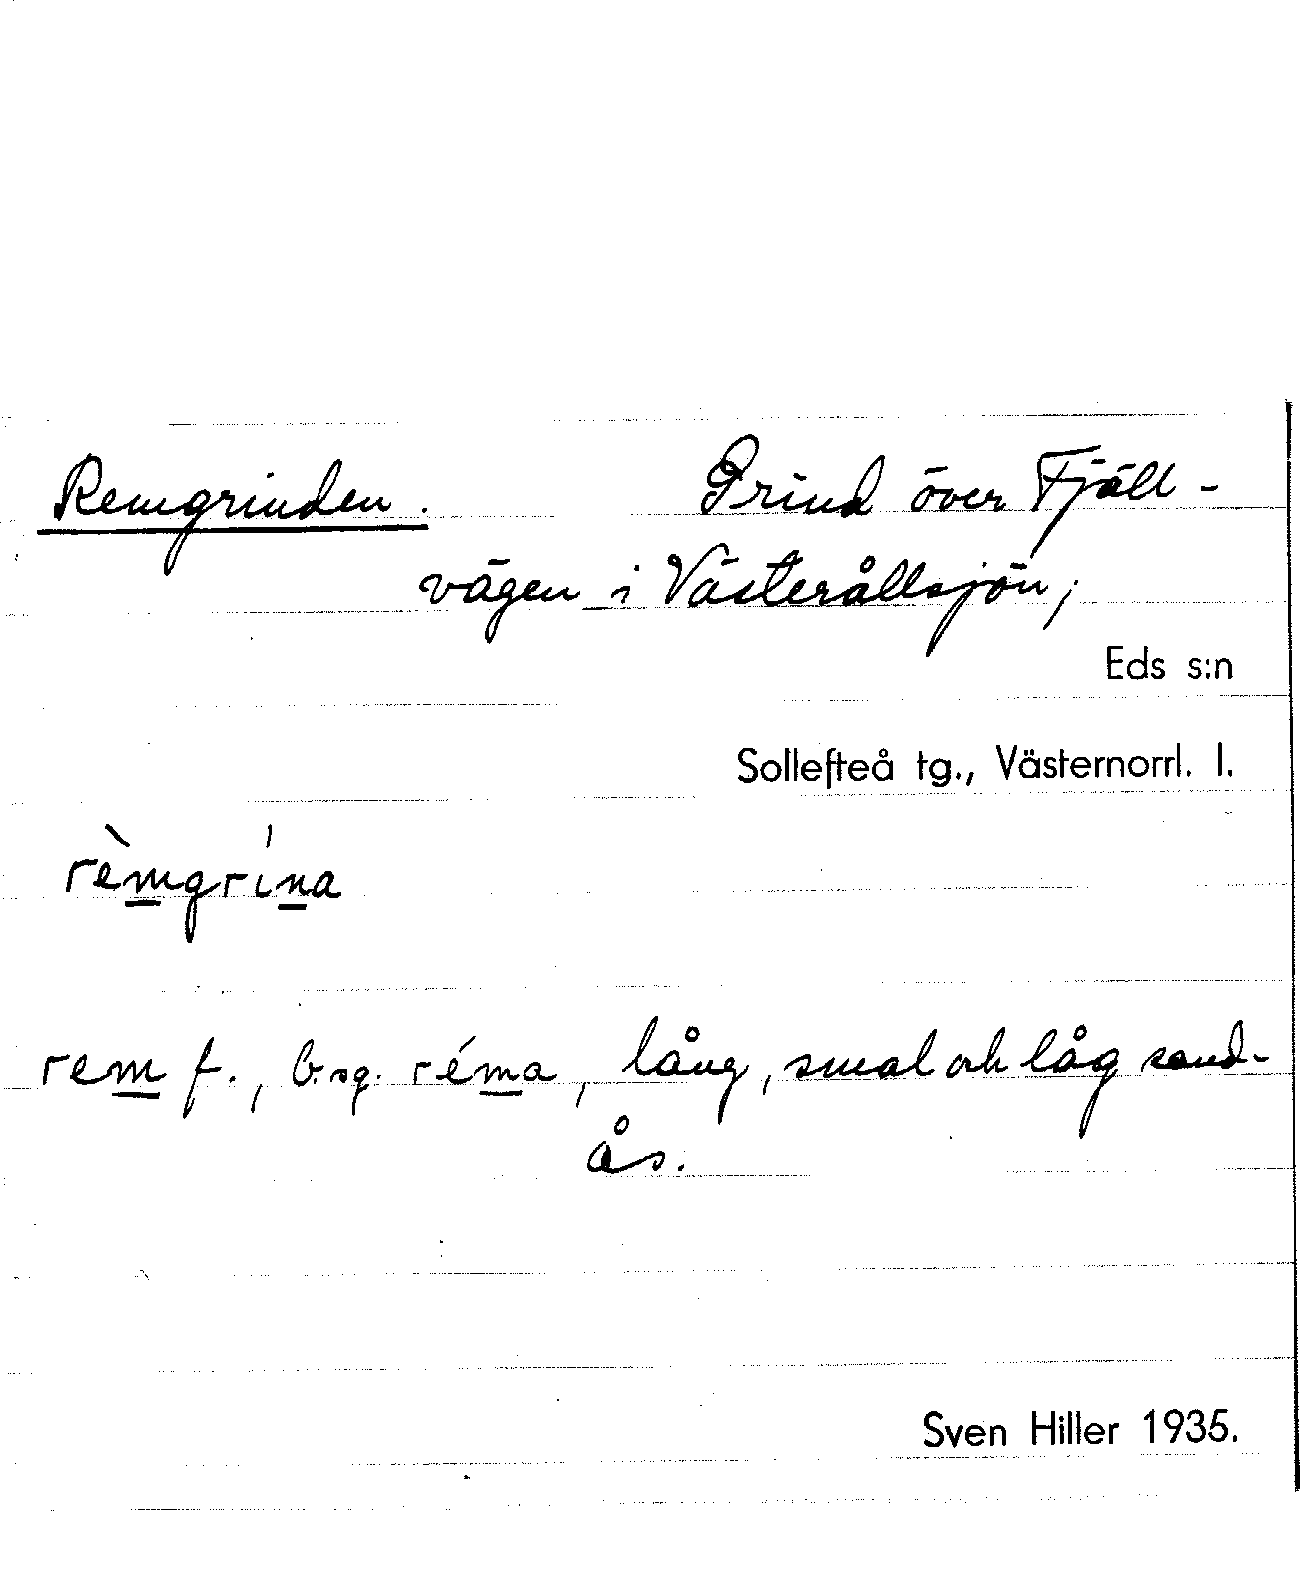 Remgrinden. Grind över Fjäll-
vägen i Västerållsjön,
Eds s:n
Sollefteå tg., Västernorrl. l.
rèm̲grín̲a
rem̲ f., b.sg. rém̲a, lång, smal och låg sand-
ås.
Sven Hiller 1935.